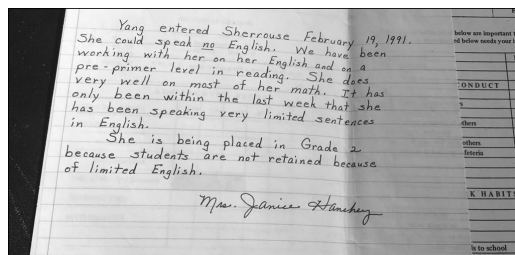 Yang entered Sherrouse February 19, 1991.
She could speak no English. We have been
working with her on her English and on a
pre-primer level in reading. She does
very well on most of her math. It has
only been within the last week that she
has been speaking very limited sentences
in English.
She is being placed in Grade 2
because students are not retained because
of limited English.
Mrs. Janice Hanchey
below are important t
ed below needs your i
CONDUCT
s
thers
others
feteria
K HABITS
ls to school